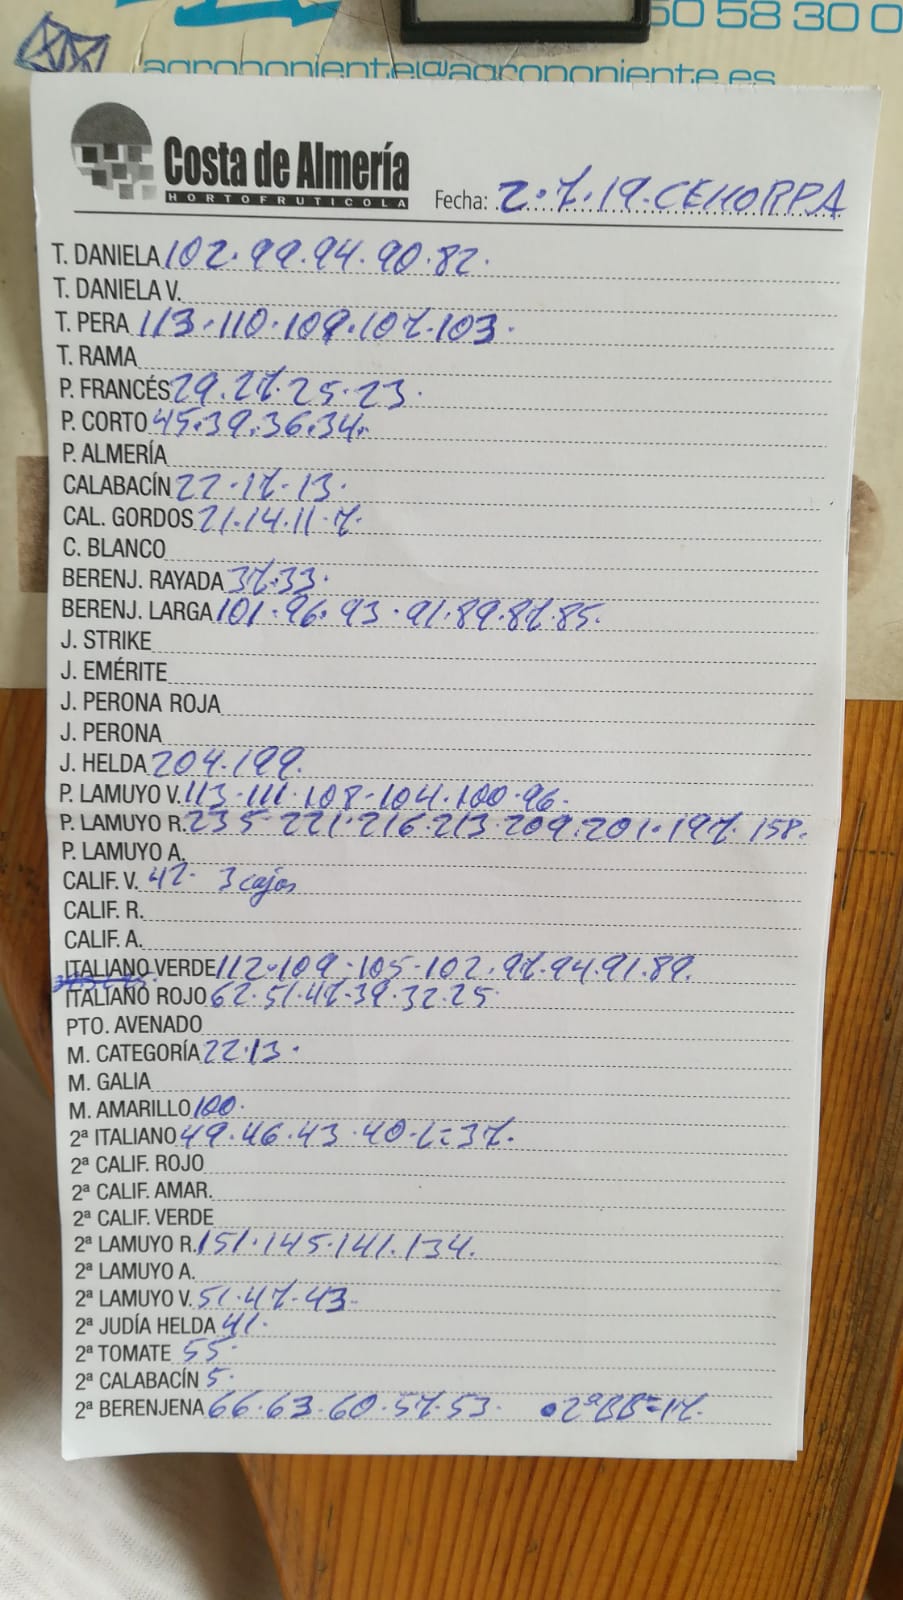 50 58 30 0
agroponiente@agroponiente.es
Costa de Almería
HORTOFRUTICOLA
Fecha: 2.7.19. CEHORPA
T. DANIELA 102.99.94.90.82.
T. DANIELA V.
T. PERA 113.110.109.107.103.
T. RAMA
P. FRANCÉS 29.27.25.23.
P. CORTO 45.39.36.34.
P. ALMERÍA
CALABACÍN 22.17.13.
CAL. GORDOS 21.14.11.7.
C. BLANCO
BERENJ. RAYADA 37.33.
BERENJ. LARGA 101.96.93.91.89.87.85.
J. STRIKE
J. EMÉRITE
J. PERONA ROJA
J. PERONA
J. HELDA 204.199.
P. LAMUYO V. 113.111.108.104.100.96.
P. LAMUYO R. 235.221.216.213.209.201.197.158.
P. LAMUYO A.
CALIF. V. 42. 3 cajas
CALIF. R.
CALIF. A.
ITALIANO VERDE 112.109.105.102.97.94.91.89.
ITALIANO ROJO 62.51.47.39.32.25
PTO. AVENADO
M. CATEGORÍA 22.13.
M. GALIA
M. AMARILLO 100.
2ª ITALIANO 49.46.43.40.L=37.
2ª CALIF. ROJO
2ª CALIF. AMAR.
2ª CALIF. VERDE
2ª LAMUYO R. 151.145.141.134.
2ª LAMUYO A.
2ª LAMUYO V. 51.47.43.
2ª JUDÍA HELDA 41.
2ª TOMATE 55.
2ª CALABACÍN 5.
2ª BERENJENA 66.63.60.57.53. •2ªBB=17.